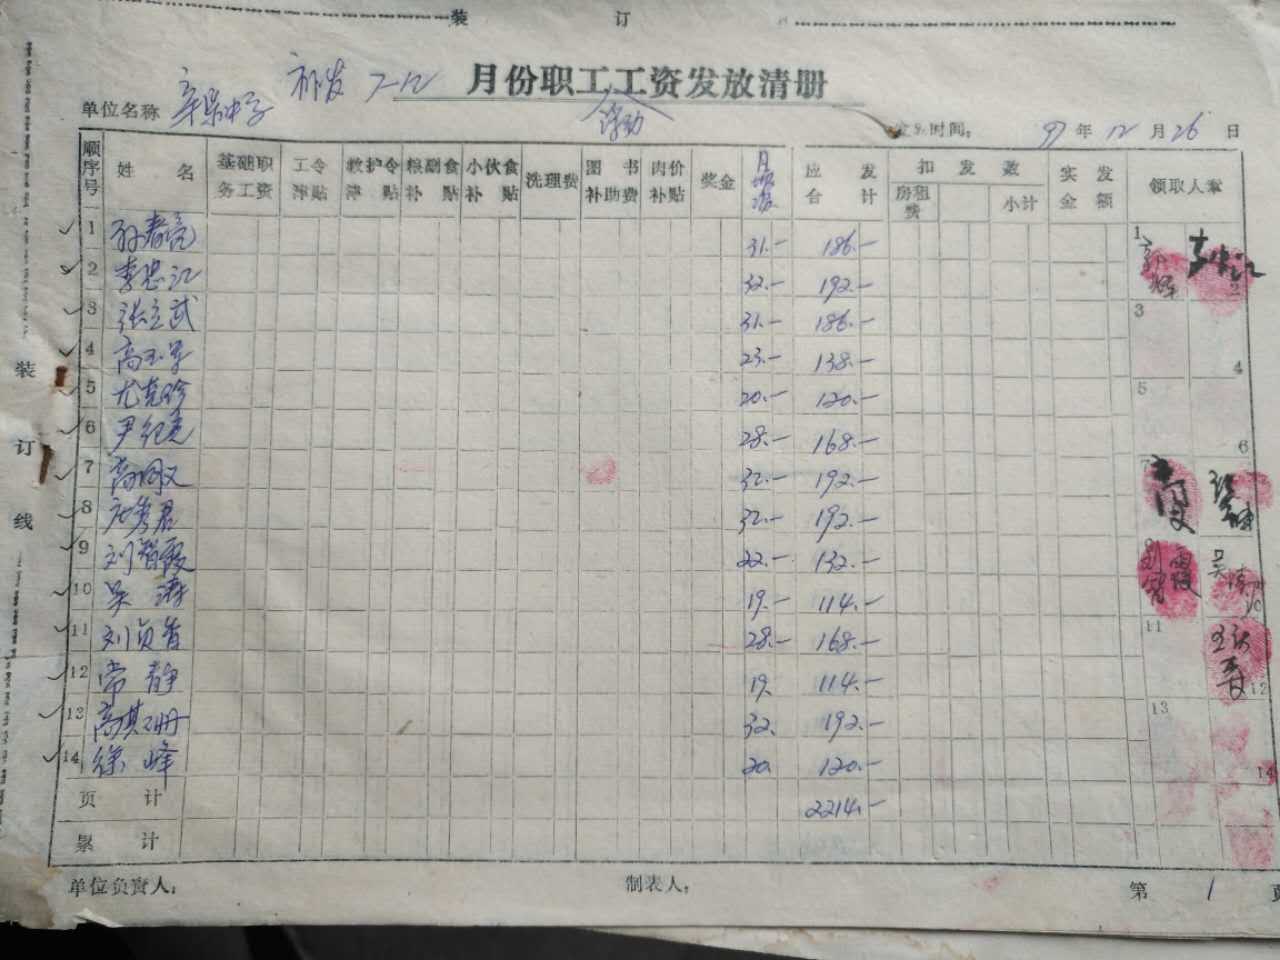 装 订
补发 7-12 月份职工工资发放清册
浮动
单位名称 辛 中学 时间: 97 年 12 月 26 日
顺序号 姓名 基础职务工资 工令津贴 救护令津贴 粮副食补贴 小伙食补贴 洗理费 图书补助费 肉价补贴 奖金 月 应发合计 扣发款 房租费 小计 实发金额 领取人章
1 孙春亮 31.- 186.- 1
2 李忠江 32.- 192.- 2
3 张立武 31.- 186.- 3
4 高玉军 23.- 138.- 4
5 尤克珍 20.- 120.- 5
6 尹纪亮 28.- 168.- 6
7 高同文 32.- 192.- 7
8 秀君 32.- 192.-
9 刘智霞 22.- 132.- 9 刘智霞
10 吴涛 19.- 114.- 吴涛 10
11 刘贞省 28.- 168.- 11
12 常静 19. 114.- 12
13 高其册 32. 192.- 13
14 徐峰 20. 120.- 14
页计 2214.-
累计
单位负责人: 制表人: 第 1 页
装
订
线